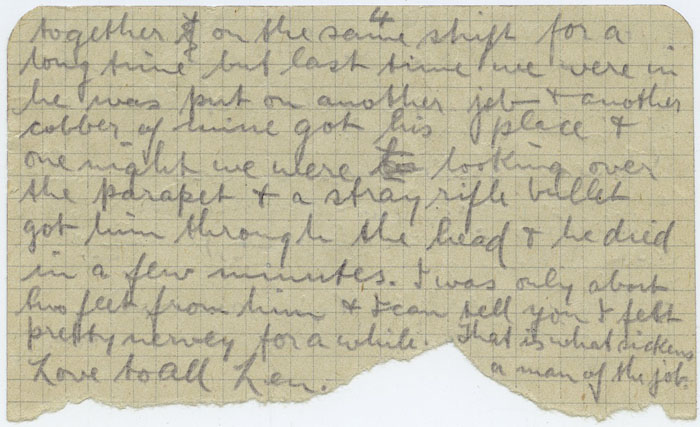 4
together & on the same shift for a
long time but last time we were in
he was put on another job & another
cobber of mine got his place &
one night we were looking over
the parapet & a stray rifle bullet
got him through the head & he died
in a few minutes. I was only about
two feet from him & I can tell you I felt
pretty nervey for a while. That is what sickens
a man of the job.
Love to all Len.